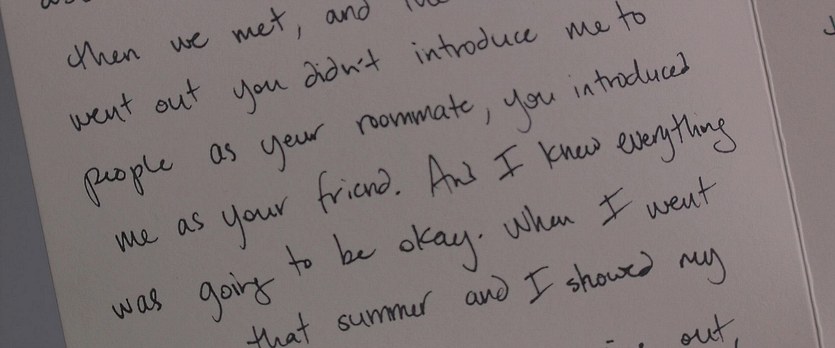 then we met, and
went out you didn't introduce me to
people as your roommate, you introduced
me as your friend. And I knew everything
was going to be okay. When I went
that summer and I showed my
out,